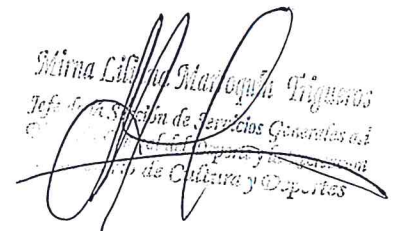 Mirna Liliana Marroquín Trigueros
Jefe de la Sección de Servicios Generales
del Deporte y la Recreación
de Cultura y Deportes